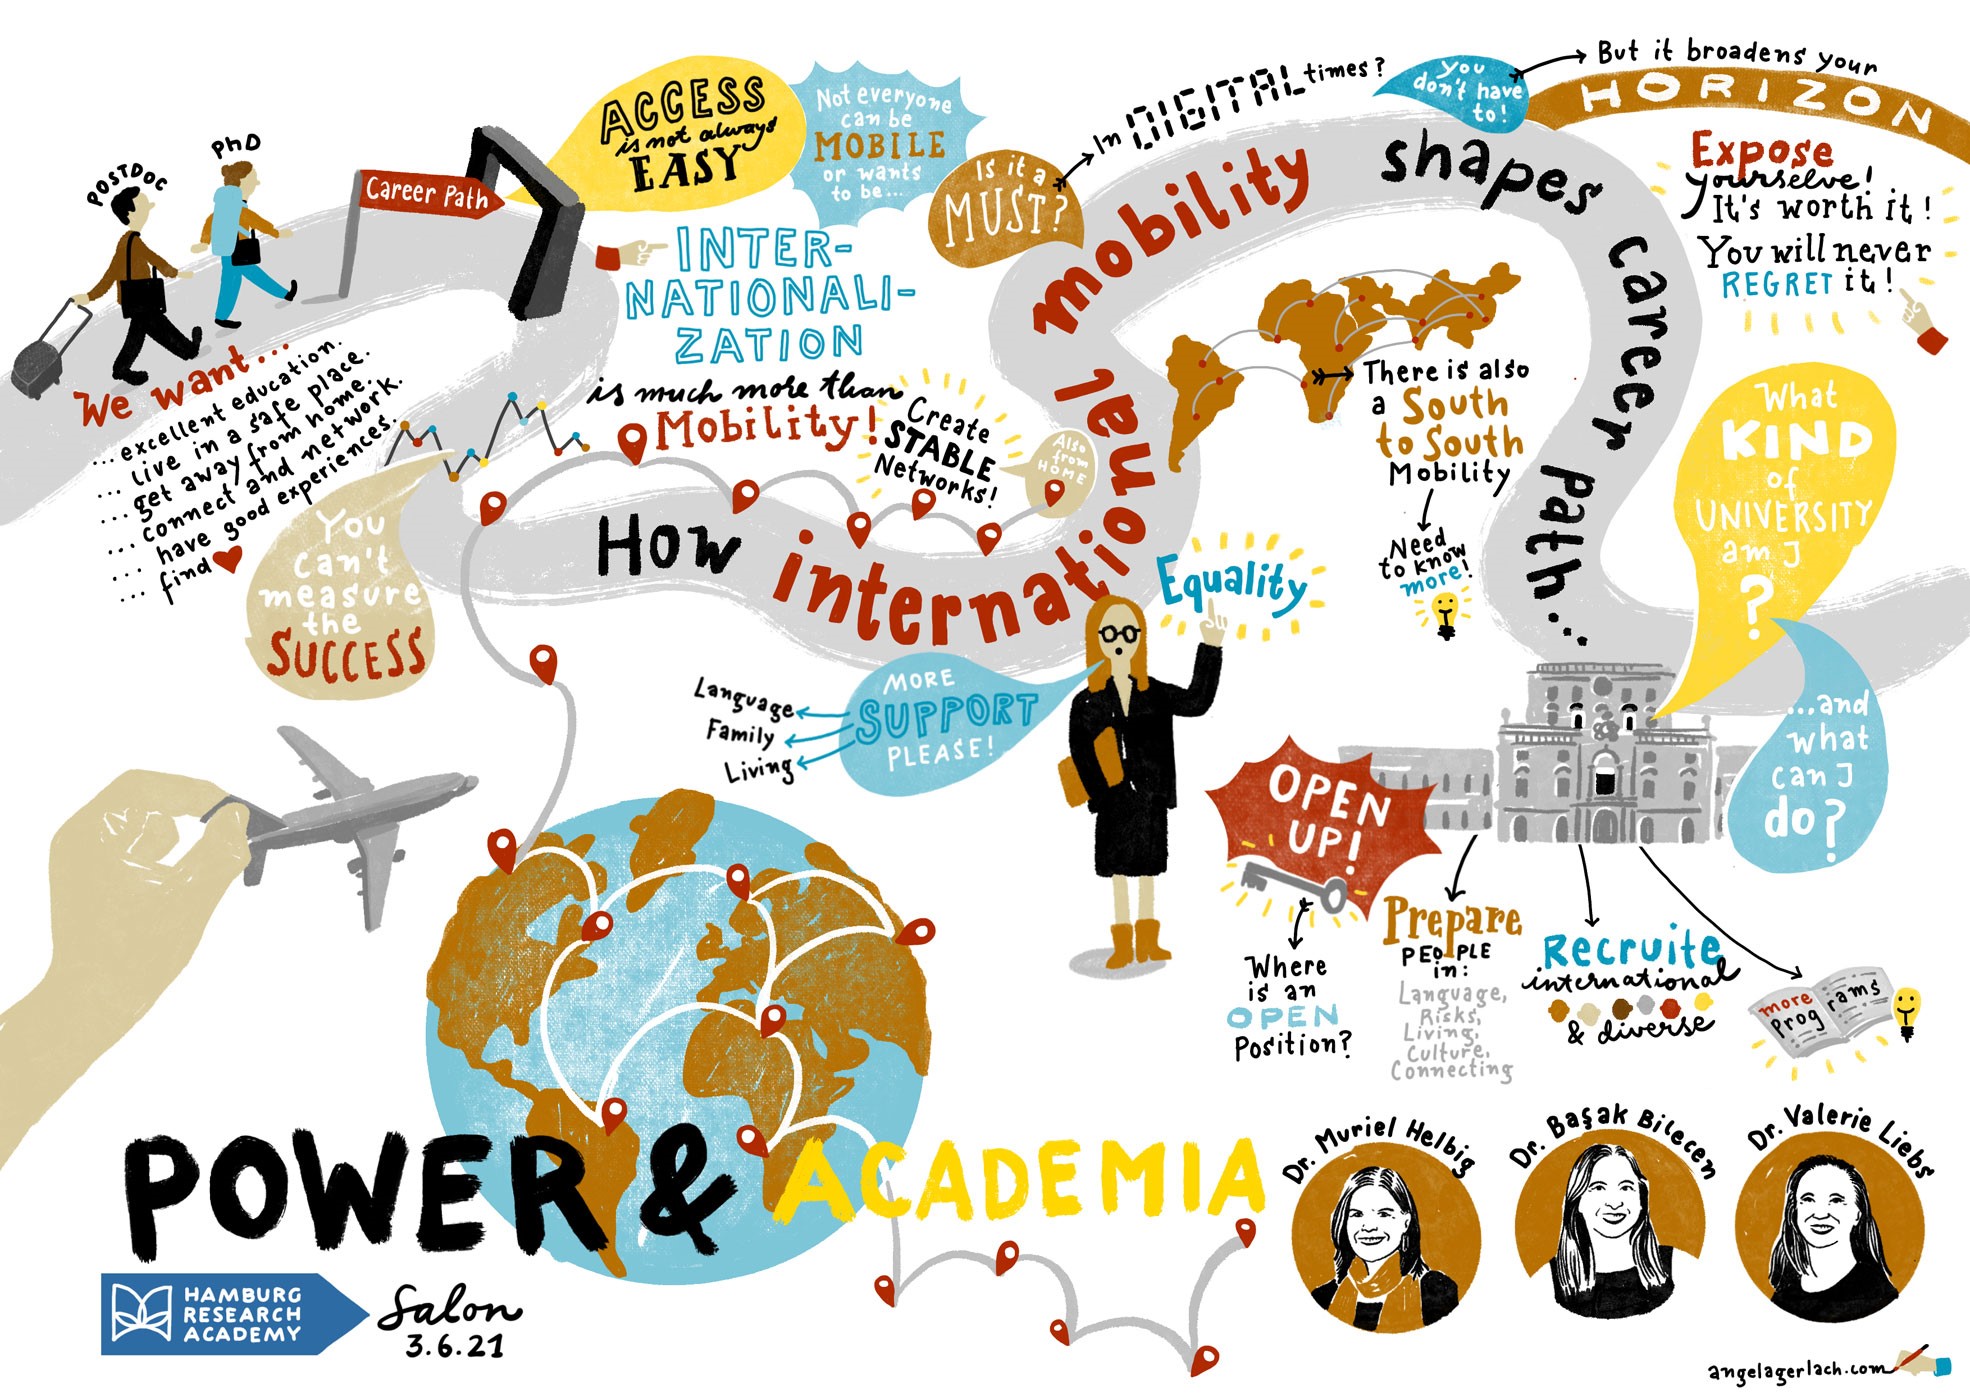 POSTDOC
PhD
Career Path
ACCESS
is not always
EASY
Not everyone
can be
MOBILE
or wants
to be...
Is it a
MUST?
In DIGITAL times?
You
don't have
to!
But it broadens your
HORIZON
Expose
yourselve!
It's worth it!
You will never
REGRET it!
We want...
...excellent education.
... live in a safe place.
... get away from home.
... connect and network.
... have good experiences.
... find
You
can't
measure
the
SUCCESS
INTER-
NATIONALI-
ZATION
is much more than
Mobility!
Create
STABLE
Networks!
Also
from
HOME
How international mobility shapes career path...
There is also
a South
to South
Mobility
Need
to know
more!
What
KIND
of
UNIVERSITY
am I
?
...and
what
can I
do?
Equality
MORE
SUPPORT
PLEASE!
Language
Family
Living
OPEN
UP!
Where
is an
OPEN
Position?
Prepare
PEOPLE
in:
Language,
Risks,
Living,
Culture,
Connecting
Recruite
international
& diverse
more
Programs
POWER & ACADEMIA
HAMBURG
RESEARCH
ACADEMY
Salon
3.6.21
Dr. Muriel Helbig
Dr. Başak Bilecen
Dr. Valerie Liebs
angelagerlach.com